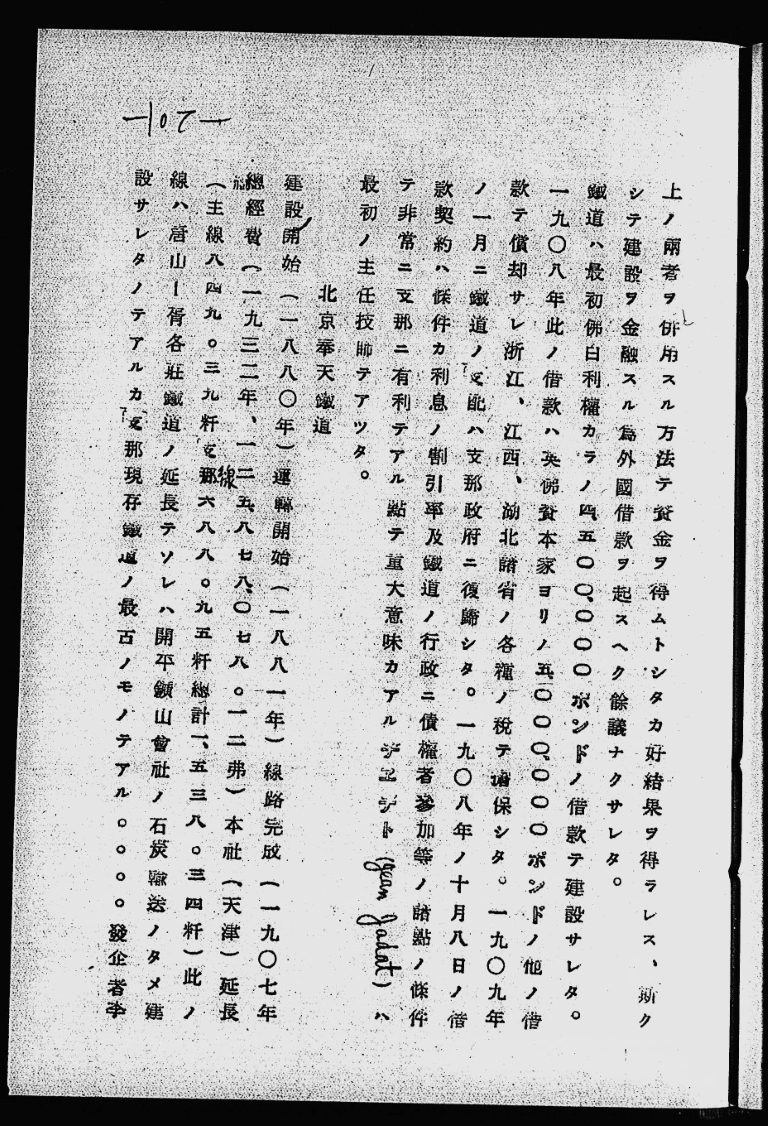 —107—
上ノ兩者ヲ併用スル方法テ資金ヲ得ムトシタカ好結果ヲ得ラレス、斯ク
シテ建設ヲ金融スル爲外國借款ヲ起スヘク餘議ナクサレタ。
鐵道ハ最初佛白利權カラノ四、五〇〇、〇〇〇ポンドノ借款テ建設サレタ。
一九〇八年此ノ借款ハ英佛資本家ヨリノ五、〇〇〇、〇〇〇ポンドノ他ノ借
款テ償却サレ浙江、江西、湖北諸省ノ各種ノ稅テ擔保シタ。一九〇九年
ノ一月ニ鐵道ノ支配ハ支那政府ニ復歸シタ。一九〇八年ノ十月八日ノ借
款契約ハ條件カ利息ノ割引率及鐵道ノ行政ニ債權者參加等ノ諸點ノ條件
テ非常ニ支那ニ有利テアル點テ重大意味カアル
(Jean Jadot)ハ
最初ノ主任技師テアツタ。
北京奉天鐵道
建設開始(一八八〇年)運轉開始(一八八一年)線路完成(一九〇七年
總經費(一九三二年、一二五、八七八、〇七八。一二弗)本社(天津)延長
(主線八四九。三九粁支線六八八。九五粁總計一、五三八。三四粁)此ノ
線ハ唐山—胥各莊鐵道ノ延長テソレハ開平鑛山會社ノ石炭輸送ノタメ建
設サレタノテアルカ支那現存鐵道ノ最古ノモノテアル。。。。發企者李